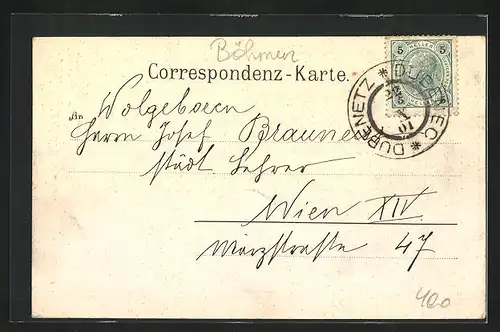 Böhmen
5 HELLER 5
Correspondenz-Karte.
DUBENETZ * DUBENEC *
X
01
An Wolgeboern
Herrn Josef Brauner
städt Lehrer
Wien XIV.
Märzstraße 47
400